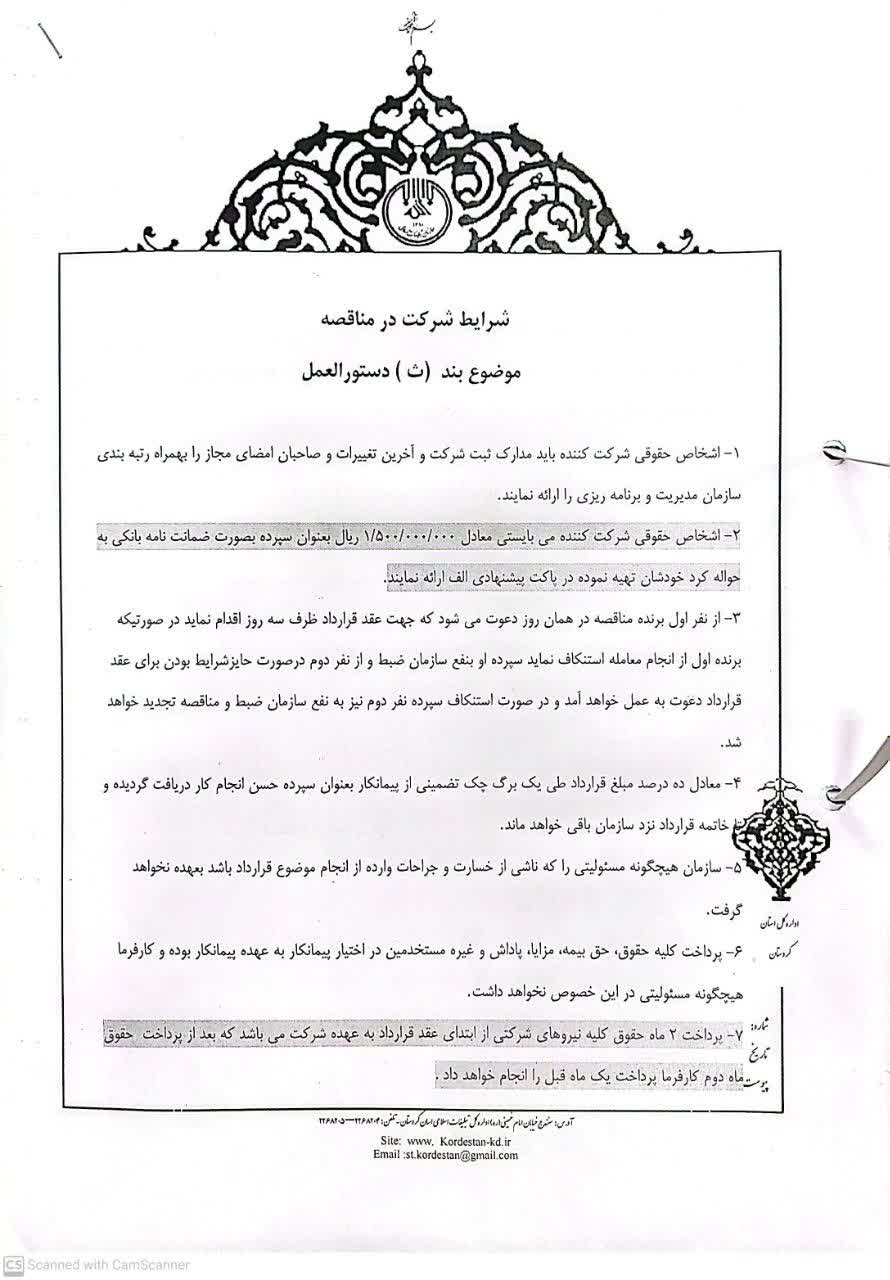 شرایط شرکت در مناقصه
موضوع بند (ث) دستورالعمل
۱- اشخاص حقوقی شرکت کننده باید مدارک ثبت شرکت و آخرین تغییرات و صاحبان امضای مجاز را بهمراه رتبه بندی
سازمان مدیریت و برنامه ریزی را ارائه نمایند.
۲- اشخاص حقوقی شرکت کننده می بایستی معادل ۱/۵۰۰/۰۰۰/۰۰۰ ریال بعنوان سپرده بصورت ضمانت نامه بانکی به
حواله کرد خودشان تهیه نموده در پاکت پیشنهادی الف ارائه نمایند.
۳- از نفر اول برنده مناقصه در همان روز دعوت می شود که جهت عقد قرارداد ظرف سه روز اقدام نماید در صورتیکه
برنده اول از انجام معامله استنکاف نماید سپرده او بنفع سازمان ضبط و از نفر دوم درصورت حایزشرایط بودن برای عقد
قرارداد دعوت به عمل خواهد آمد و در صورت استنکاف سپرده نفر دوم نیز به نفع سازمان ضبط و مناقصه تجدید خواهد
شد.
۴- معادل ده درصد مبلغ قرارداد طی یک برگ چک تضمینی از پیمانکار بعنوان سپرده حسن انجام کار دریافت گردیده و
تا خاتمه قرارداد نزد سازمان باقی خواهد ماند.
۵- سازمان هیچگونه مسئولیتی را که ناشی از خسارت و جراحات وارده از انجام موضوع قرارداد باشد بعهده نخواهد
گرفت.
اداره کل استان
کردستان
۶- پرداخت کلیه حقوق، حق بیمه، مزایا، پاداش و غیره مستخدمین در اختیار پیمانکار به عهده پیمانکار بوده و کارفرما
هیچگونه مسئولیتی در این خصوص نخواهد داشت.
شماره:
تاریخ
پیوست
۷- پرداخت ۲ ماه حقوق کلیه نیروهای شرکتی از ابتدای عقد قرارداد به عهده شرکت می باشد که بعد از پرداخت حقوق
ماه دوم کارفرما پرداخت یک ماه قبل را انجام خواهد داد.
آدرس: سنندج خیابان امام خمینی (ره) اداره کل تبلیغات اسلامی استان کردستان - تلفن:
Site: www. Kordestan-kd.ir
Email :st.kordestan@gmail.com
CS Scanned with CamScanner